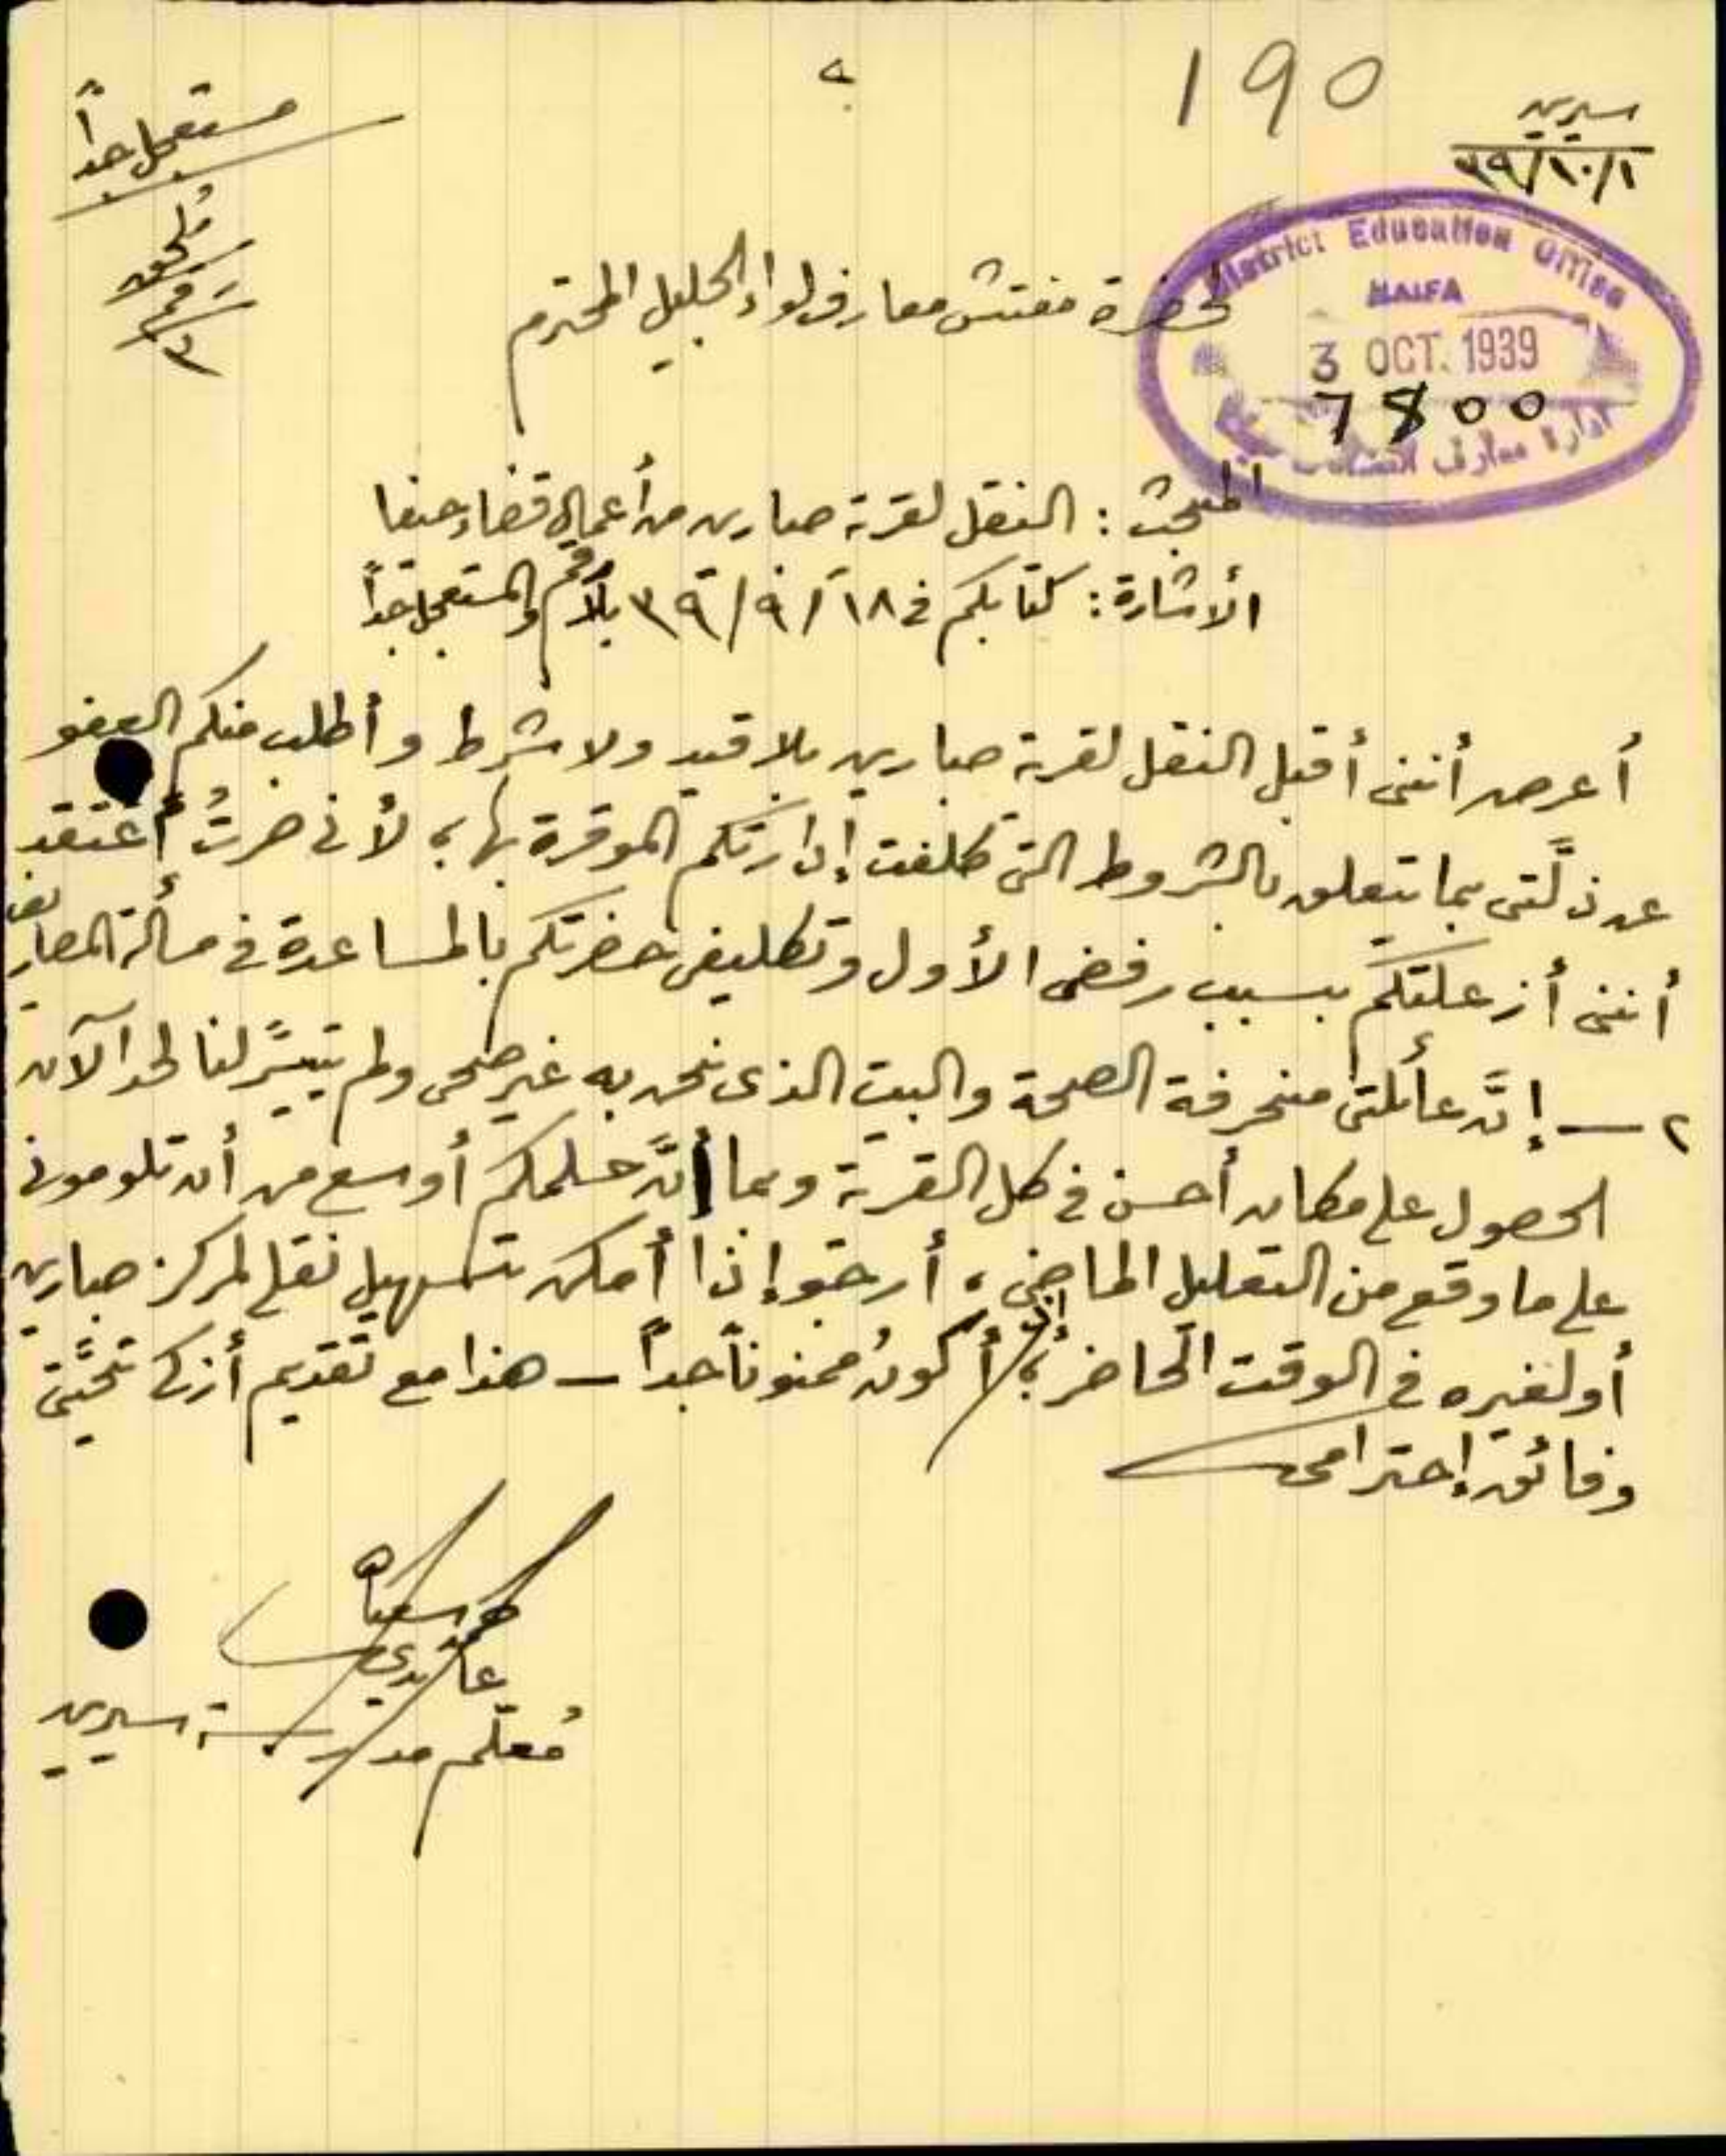 190
سيرين
٣٩/١٠/١
مستعجل جداً
ملحق
رقم
٣
District Education Office
HAIFA
3 OCT. 1939
7800
ادارة معارف
لحضرة مفتش معارف لواء الجليل المحترم
المبحث : النقل لقرية صبارين من أعمال قضاء حيفا
الأشارة : كتابكم في ١٨/٩/٣٩ بلا رقم والمستعجل جداً
أعرض أنني أقبل النقل لقرية صبارين بلا قيد ولا شرط وأطلب منكم العفو
عن ذلّتي بما يتعلق بالشروط التي كلفت إدارتكم الموقرة بها ؛ لأني صرتُ أعتقد
أنني أزعلتكم بسبب رفضي الأول وتكليفي حضرتكم بالمساعدة في مسألة المصاريف
٢ — إنَّ عائلتي منحرفة الصحة والبيت الذي نحن به غير صحي ولم يتيسَّر لنا لحد الآن
الحصول على مكان أحسن في كل القرية وبما أنَّ حلمكم أوسع من أن تلوموني
على ما وقع من التعليل الماضي ، أرجو إذا أمكن تسهيل نقلي لمركز صبارين
أو لغيره في الوقت الحاضر ؛ لأكونُ ممنوناً جداً — هذا مع تقديم أزكى تحيَّتي
وفائق إحترامي
عابدي
مُعلّم مدرسة سيرين